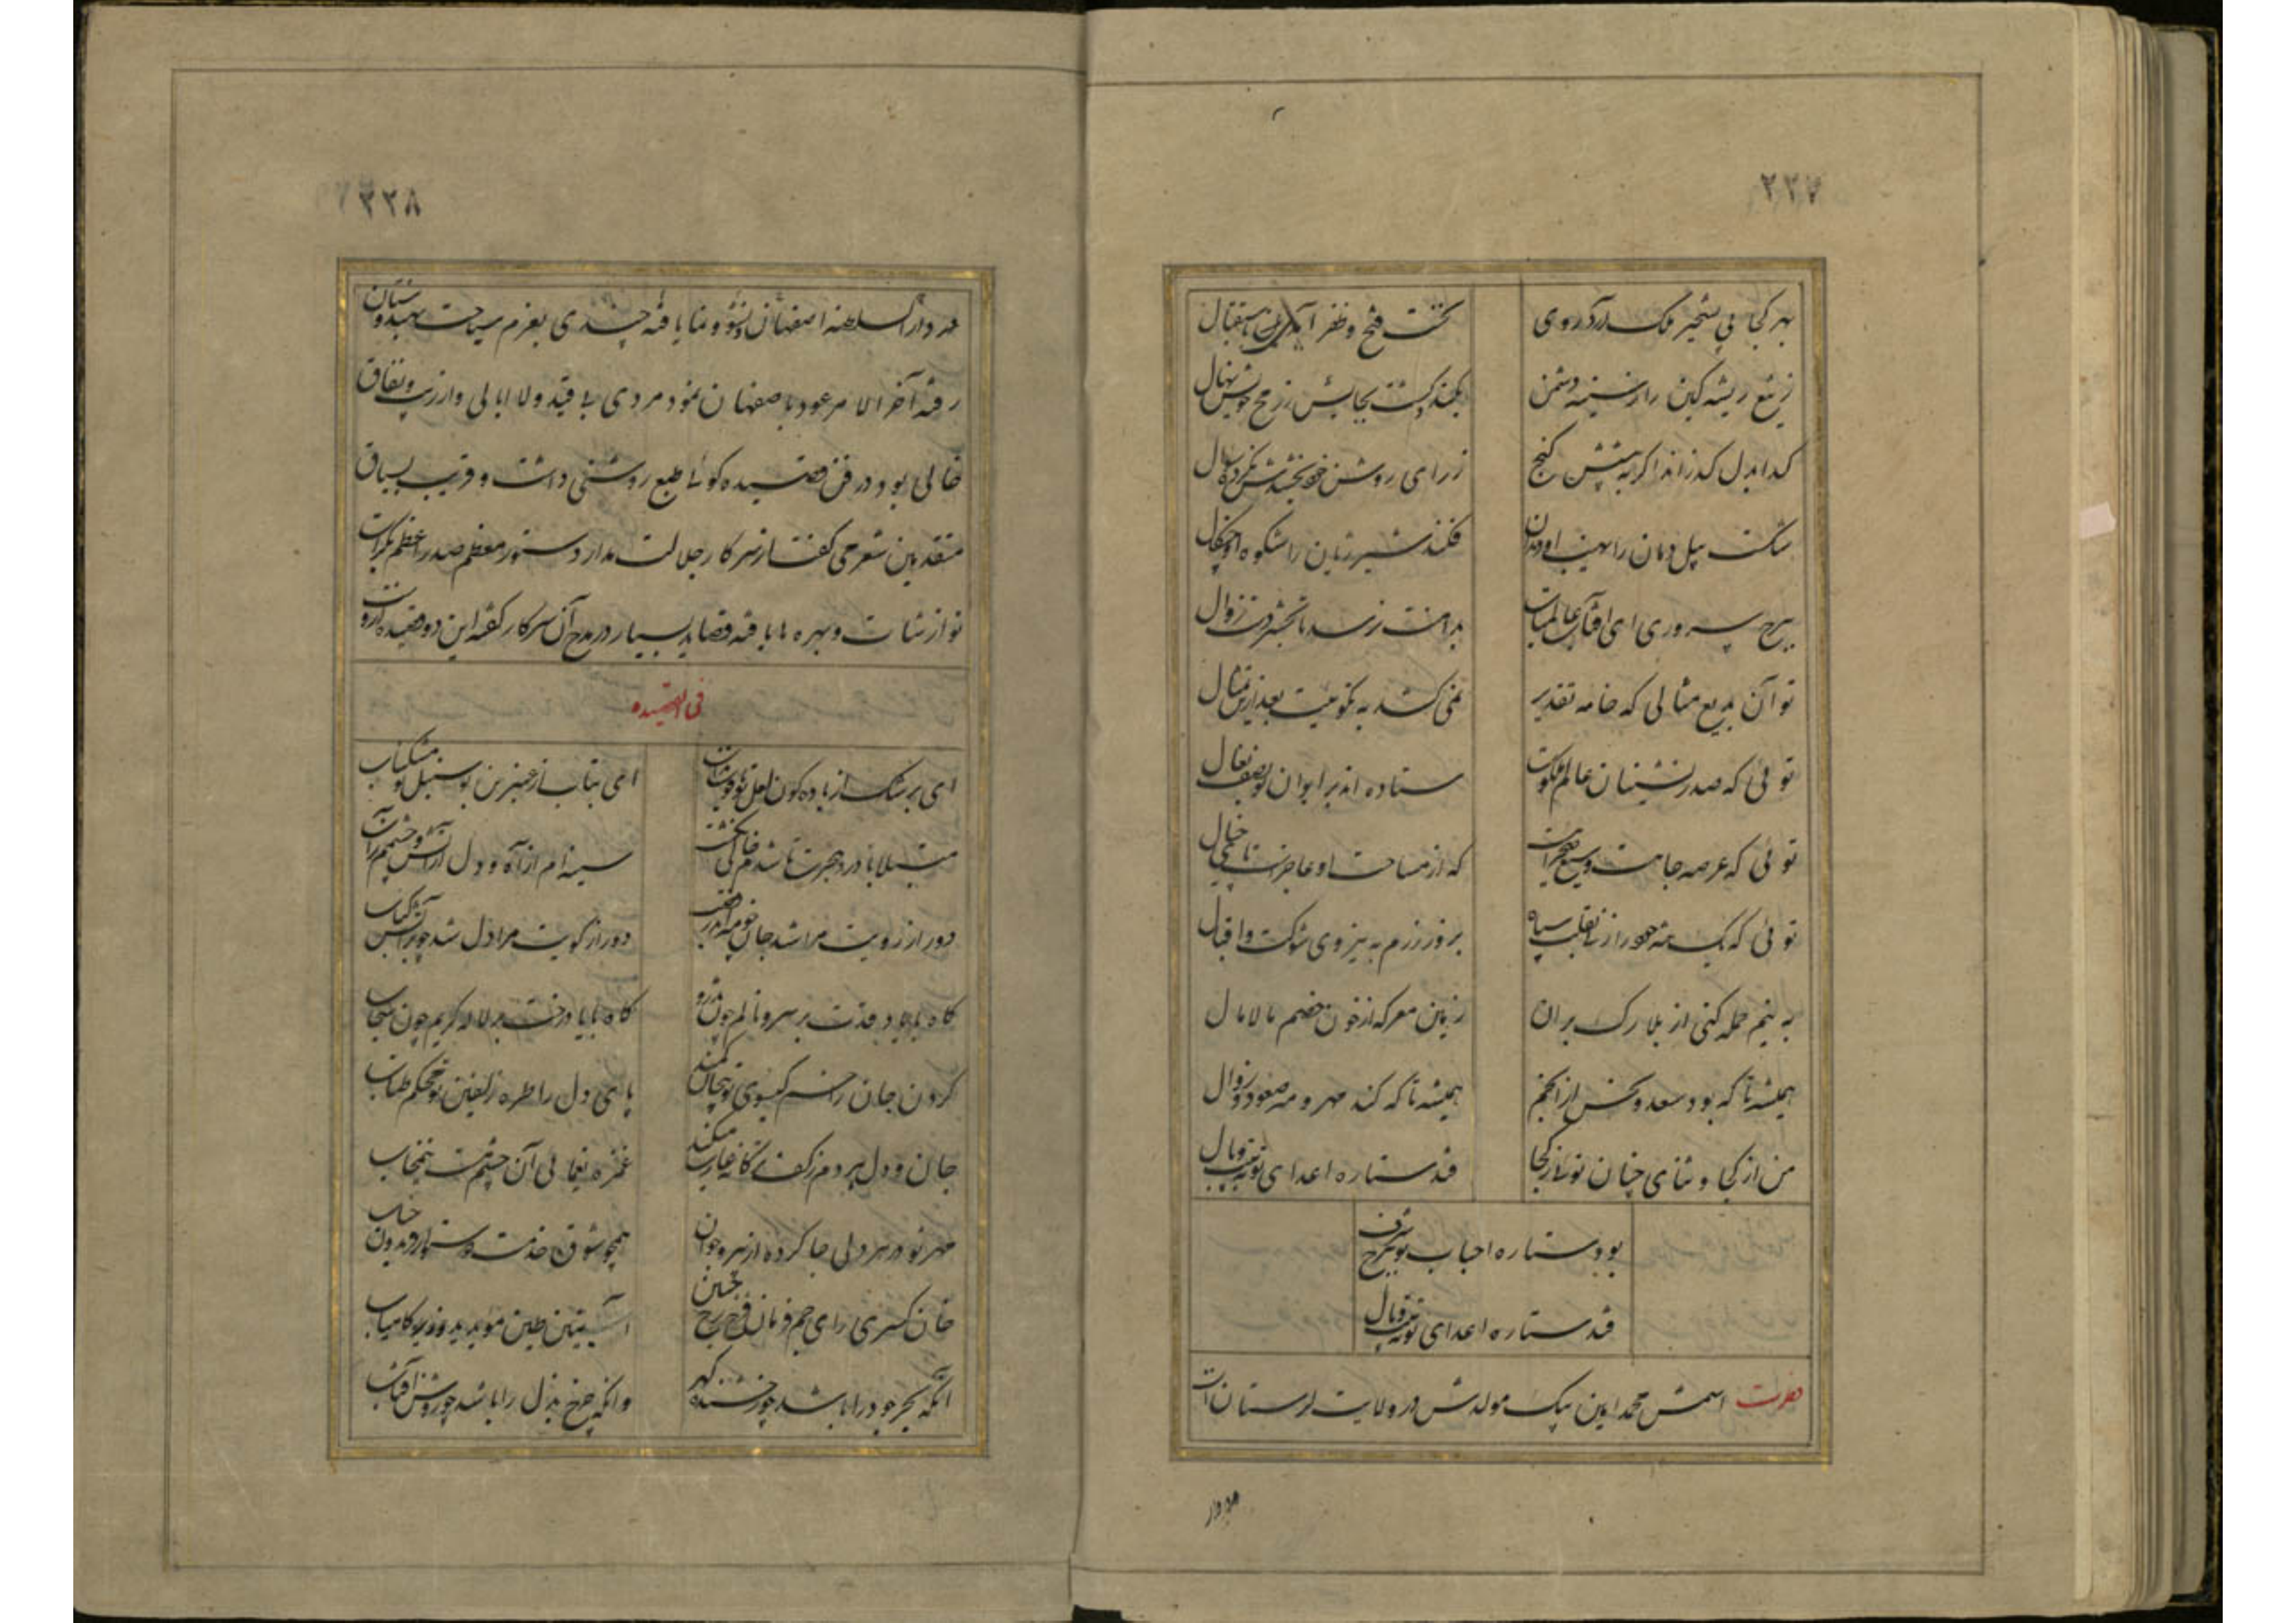 ۲۲۷
بهر کجا پی تسخیر ملک آرد روی
نخست فتح و ظفر آیدش باستقبال
ز تیغ ریشه کین را ز سینه دشمن
کند بکشت بجایش ز رمح خویش نهال
گدا بدل گذراند اگر به پیشش گنج
ز رای روشن خود بخشدش نکرده سوال
شکست پیل دمان را نهیب او دندان
فکند شیر ژیان را شکوه او چنگال
سپهر سروری ای آفتاب عالمتاب
بدامنت نرسد تا بحشر دست زوال
تو آن بدیع مثالی که خامه تقدیر
نمی کشد به نکوئیت بعد ازین تمثال
توئی که صدر نشینان عالم ملکوت
ستاده اند بر ایوان تو بصف نعال
توئی که عرصه جاهت وسیع صحرائیست
که از مساحت او عاجز است پای خیال
توئی که یک تنه خود را زنی بقلب سپاه
بروز رزم به نیروی شوکت و اقبال
به نیم حمله کنی از بلارک بران
زمین معرکه از خون خصم مالامال
همیشه تا که بود سعد و نحس از انجم
همیشه تا که کند مهر و مه صعود و زوال
من از کجا و ثنای چنان توئی ز کجا
فتد ستاره اعدای تو به تیه وبال
بود ستاره احباب تو ببرج شرف
فتد ستاره اعدای تو به تیه وبال
نصرت اسمش محمد امین بیک مولدش در ولایت لرستان است
۲۲۸
در دار السلطنه اصفهان نشو و نما یافته چندی بعزم سیاحت بهندوستان
رفته آخر الامر عود باصفهان نمود مردی بی قید و لاابالی و از ریب و نفاق
خالی بود در فن قصیده گوئی طبع روشنی داشت و قریب بسیاق
متقدمین شعر می گفت از سرکار جلالت مدار دستور معظم صدر اعظم بکرات
نوازشات و بهره ها یافته قصاید بسیار در مدح آن سرکار گفته این دو قصیده ازوست
فی القصیده
ای برشک از باده گون لعل تو یاقوت مذاب
ای بتاب از عنبرین بو سنبل تو مشکناب
مبتلا با درد هجرت تا شدم خالی نگشت
سینه ام از آه و دل از آتش و چشمم ز آب
دور از رویت مرا شد جان چو مه اندر خسوف
دور از کویت مرا دل شد چو بر آتش کباب
گاه با یاد قدت بر سرو نالم چون تذرو
گاه با یاد رخت بر لاله گریم چون سحاب
گردن جان را خم گیسوی تو پیچان کمند
پای دل را طره زلفین تو محکم طناب
جان و دل بردم ز کف
غمزه یغمائی آن چشم مست نیمخواب
مهر تو در هر دلی جا کرده از پیر و جوان
همچو شوق خدمت دستور افریدون جناب
خان کسری رای جم فرمان فرخ رخ حسین
آستین
آنکه بحر جود را باشد چو رخشنده گهر
وانکه چرخ بذل را باشد چو روشن آفتاب
در دار